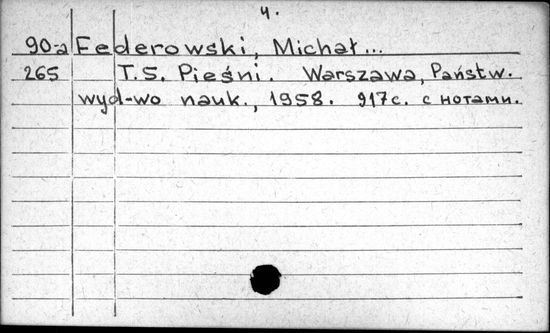 4.
90-a Federowski, Michał...
265 T.5. Pieśni. Warszawa, Państw.
wyd-wo nauk., 1958. 917с. с нотами.